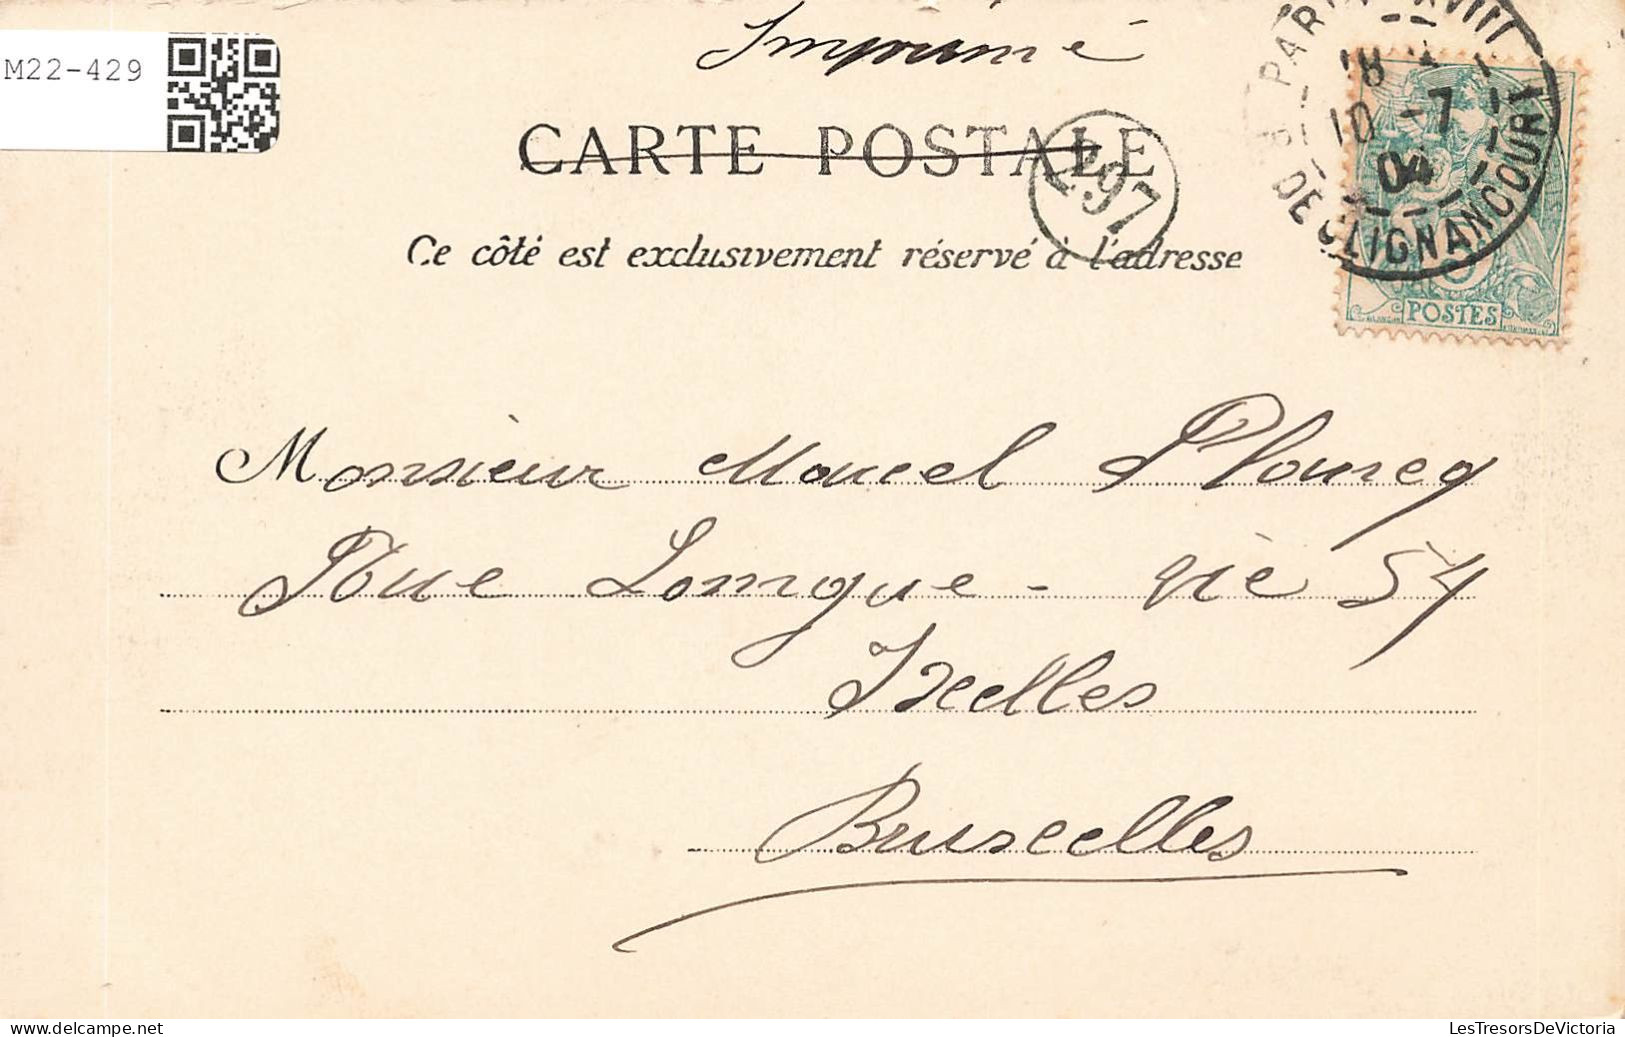 Imprimé
M22-429
CARTE POSTALE
297
PARIS XVIII
18
10 -7
04
DE CLIGNANCOURT
POSTES
Ce côté est exclusivement réservé à l'adresse
Monsieur Marcel
Rue Longue-vie 54
Ixelles
Bruxelles
LesTresorsDeVictoria
www.delcampe.net